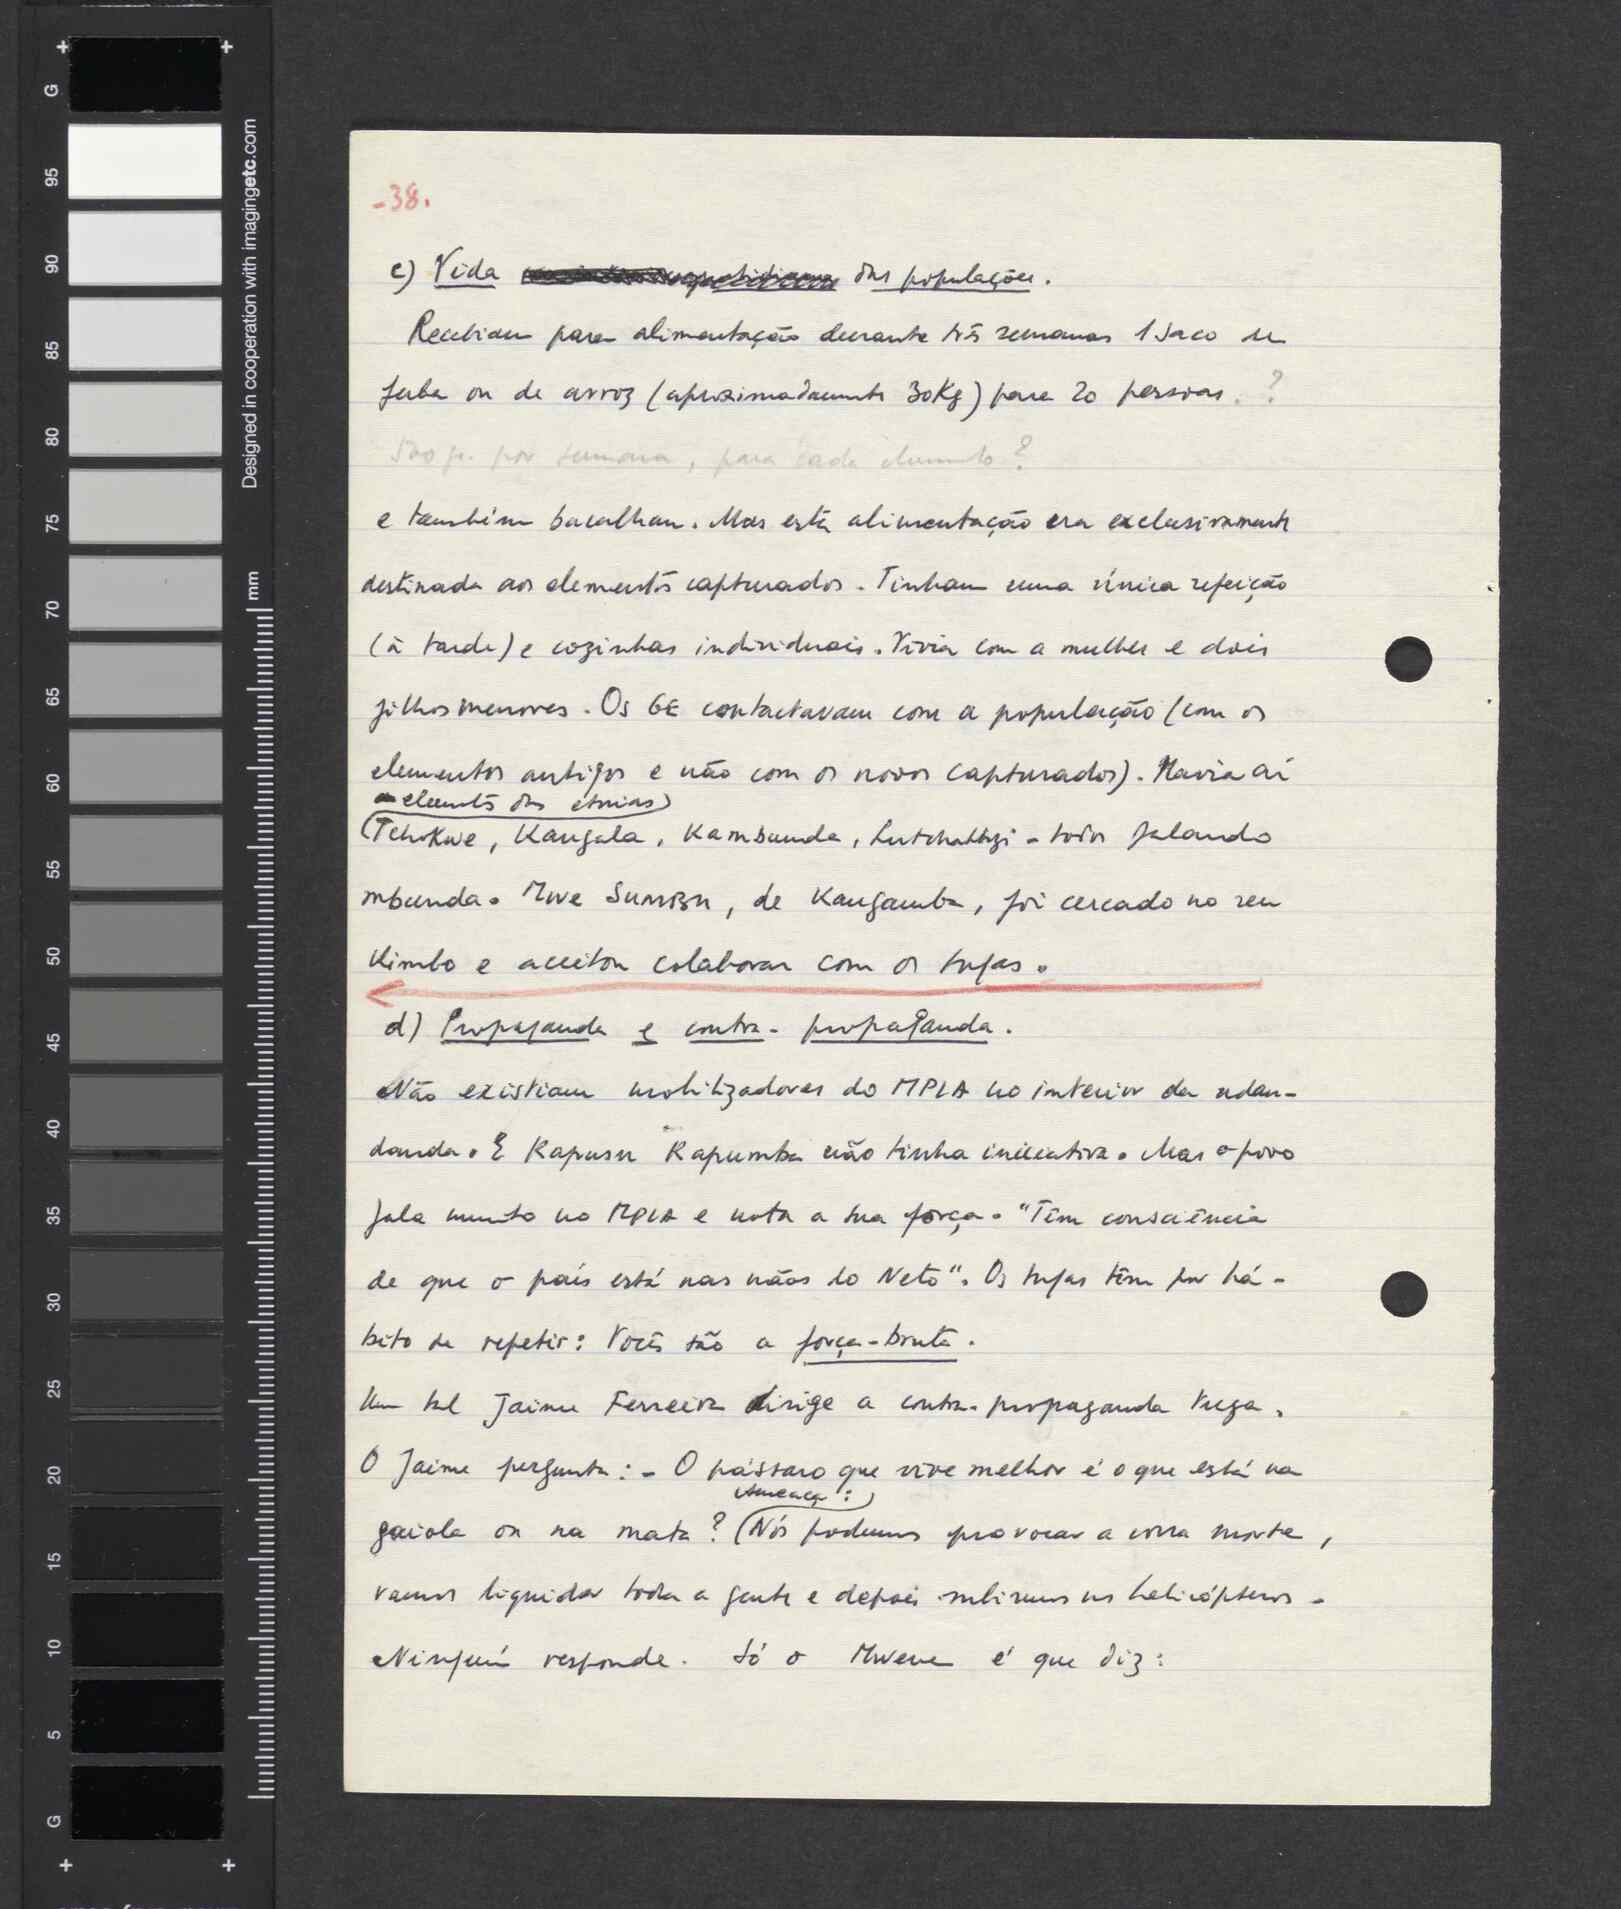 -38.
c) Vida das populações.
Recebiam para alimentação durante três semanas 1 saco de
fuba ou de arroz (aproximadamente 30Kg) para 20 pessoas. ?
500 gr. por semana, para cada elemento?
e também bacalhau. Mas esta alimentação era exclusivamente
destinada aos elementos capturados. Tinham uma única refeição
(à tarde) e cozinhas individuais. Vivia com a mulher e dois
filhos menores. Os GE contactavam com a população (com os
elementos antigos e não com os novos capturados). Havia aí
elementos das etnias
(Tchokwe, Kangala, Kambunda, - todos falando
mbunda. Mwe Sumbu, de Kangamba, foi cercado no seu
Kimbo e aceitou colaborar com os tugas.
d) Propaganda e contra-propaganda.
Não existiam mobilizadores do MPLA no interior da ndan-
danda. E Kapusu Kapumba não tinha iniciativa. Mas o povo
fala muito no MPLA e nota a sua força. "Têm consciência
de que o país está nas mãos do Neto". Os tugas têm por há-
bito de repetir: Vocês são a força-bruta.
Um tal Jaime Ferreira dirige a contra-propaganda tuga.
O Jaime pergunta: - O pássaro que vive melhor é o que está na
Ameaça:
gaiola ou na mata? (Nós podemos provocar a vossa morte,
vamos liquidar toda a gente e depois subimos nos helicópteros.
Ninguém responde. Só o Mwene é que diz:
G
95
90
85
80
75
70
65
60
55
50
45
40
35
30
25
20
15
10
5
G
Designed in cooperation with imagingetc.com
mm